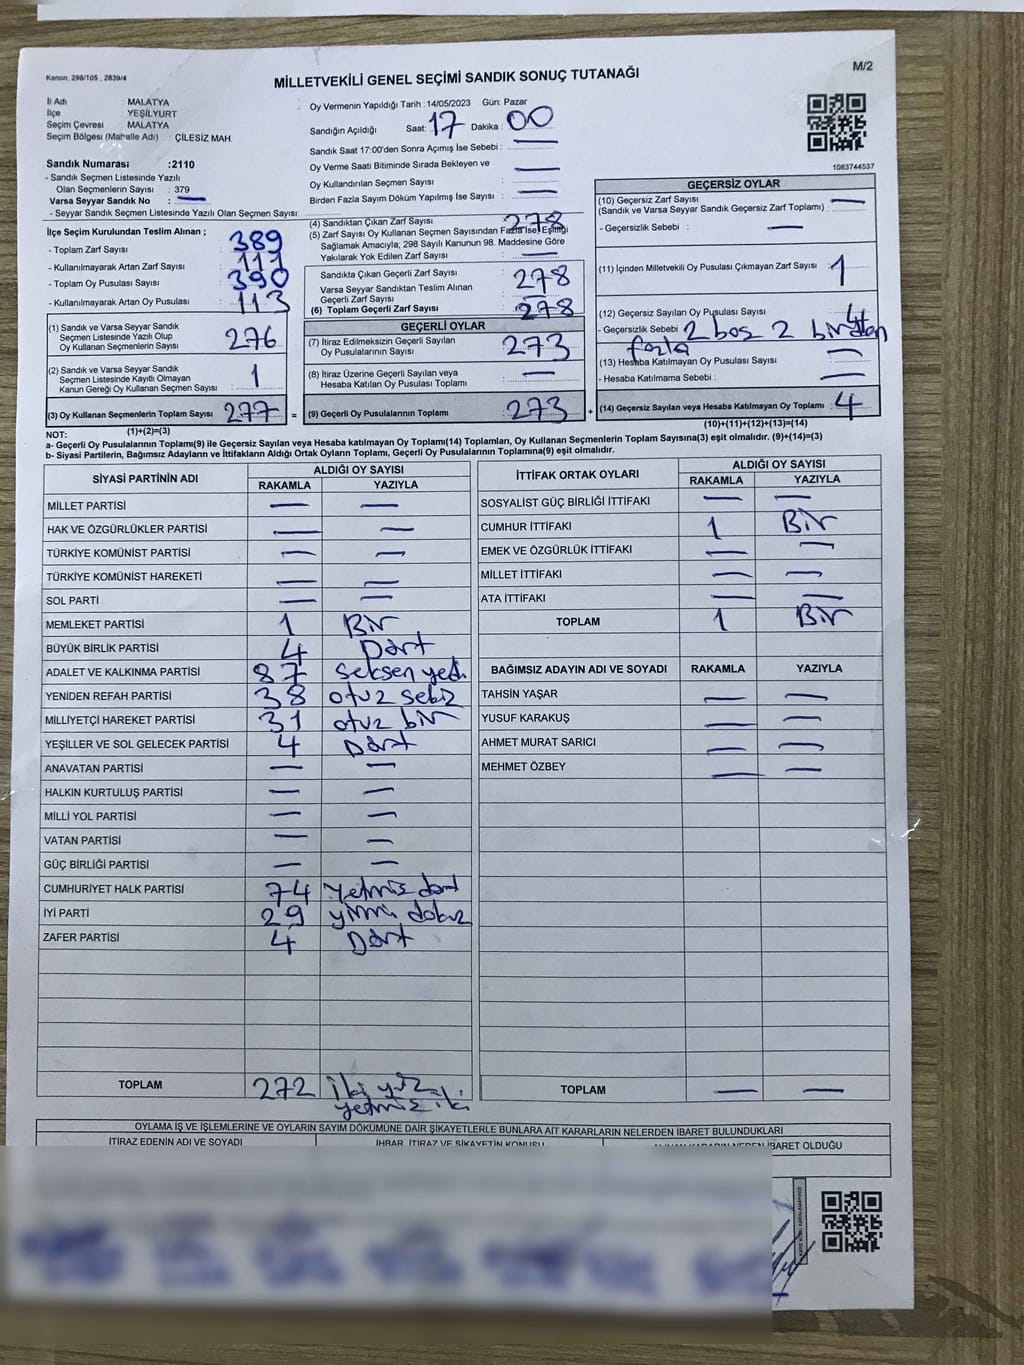 Kanun; 298/105 , 2839/4
MİLLETVEKİLİ GENEL SEÇİMİ SANDIK SONUÇ TUTANAĞI
M/2
İl Adı : MALATYA
İlçe : YEŞİLYURT
Seçim Çevresi : MALATYA
Seçim Bölgesi (Mahalle Adı) : ÇİLESİZ MAH.
Sandık Numarası :2110
- Sandık Seçmen Listesinde Yazılı
Olan Seçmenlerin Sayısı : 379
Varsa Seyyar Sandık No : —
- Seyyar Sandık Seçmen Listesinde Yazılı Olan Seçmen Sayısı:
Oy Vermenin Yapıldığı Tarih : 14/05/2023 Gün: Pazar
Sandığın Açıldığı Saat: 17 Dakika : 00
Sandık Saat 17:00'den Sonra Açımış İse Sebebi : —
Oy Verme Saati Bitiminde Sırada Bekleyen ve —
Oy Kullandırılan Seçmen Sayısı : —
Birden Fazla Sayım Döküm Yapılmış İse Sayısı : —
1083744537
İlçe Seçim Kurulundan Teslim Alınan ;
- Toplam Zarf Sayısı : 389
- Kullanılmayarak Artan Zarf Sayısı : 111
- Toplam Oy Pusulası Sayısı : 390
- Kullanılmayarak Artan Oy Pusulası : 113
(1) Sandık ve Varsa Seyyar Sandık
Seçmen Listesinde Yazılı Olup
Oy Kullanan Seçmenlerin Sayısı : 276
(2) Sandık ve Varsa Seyyar Sandık
Seçmen Listesinde Kayıtlı Olmayan
Kanun Gereği Oy Kullanan Seçmen Sayısı : 1
(3) Oy Kullanan Seçmenlerin Toplam Sayısı : 277 =
(1)+(2)=(3)
(4) Sandıktan Çıkan Zarf Sayısı : 278
(5) Zarf Sayısı Oy Kullanan Seçmen Sayısından Fazla İse) Eşitliği
Sağlamak Amacıyla; 298 Sayılı Kanunun 98. Maddesine Göre
Yakılarak Yok Edilen Zarf Sayısı : —
Sandıkta Çıkan Geçerli Zarf Sayısı : 278
Varsa Seyyar Sandıktan Teslim Alınan
Geçerli Zarf Sayısı : —
(6) Toplam Geçerli Zarf Sayısı : 278
GEÇERLİ OYLAR
(7) İtiraz Edilmeksizin Geçerli Sayılan
Oy Pusulalarının Sayısı : 273
(8) İtiraz Üzerine Geçerli Sayılan veya
Hesaba Katılan Oy Pusulası Toplamı : —
(9) Geçerli Oy Pusulalarının Toplamı : 273 +
GEÇERSİZ OYLAR
(10) Geçersiz Zarf Sayısı : —
(Sandık ve Varsa Seyyar Sandık Geçersiz Zarf Toplamı)
- Geçersizlik Sebebi : —
(11) İçinden Milletvekili Oy Pusulası Çıkmayan Zarf Sayısı : 1
(12) Geçersiz Sayılan Oy Pusulası Sayısı : 4
- Geçersizlik Sebebi 2 boş 2 birden
fazla
(13) Hesaba Katılmayan Oy Pusulası Sayısı : —
- Hesaba Katılmama Sebebi : —
(14) Geçersiz Sayılan veya Hesaba Katılmayan Oy Toplamı : 4
(10)+(11)+(12)+(13)=(14)
NOT:
a- Geçerli Oy Pusulalarının Toplamı(9) ile Geçersiz Sayılan veya Hesaba katılmayan Oy Toplamı(14) Toplamları, Oy Kullanan Seçmenlerin Toplam Sayısına(3) eşit olmalıdır. (9)+(14)=(3)
b- Siyasi Partilerin, Bağımsız Adayların ve İttifakların Aldığı Ortak Oyların Toplamı, Geçerli Oy Pusulalarının Toplamına(9) eşit olmalıdır.
SİYASİ PARTİNİN ADI ALDIĞI OY SAYISI
RAKAMLA YAZIYLA
MİLLET PARTİSİ — —
HAK VE ÖZGÜRLÜKLER PARTİSİ — —
TÜRKİYE KOMÜNİST PARTİSİ — —
TÜRKİYE KOMÜNİST HAREKETİ — —
SOL PARTİ — —
MEMLEKET PARTİSİ 1 Bir
BÜYÜK BİRLİK PARTİSİ 4 Dört
ADALET VE KALKINMA PARTİSİ 87 seksen yedi
YENİDEN REFAH PARTİSİ 38 otuz sekiz
MİLLİYETÇİ HAREKET PARTİSİ 31 otuz bir
YEŞİLLER VE SOL GELECEK PARTİSİ 4 Dört
ANAVATAN PARTİSİ — —
HALKIN KURTULUŞ PARTİSİ — —
MİLLİ YOL PARTİSİ — —
VATAN PARTİSİ — —
GÜÇ BİRLİĞİ PARTİSİ — —
CUMHURİYET HALK PARTİSİ 74 yetmiş dört
İYİ PARTİ 29 yirmi dokuz
ZAFER PARTİSİ 4 Dört
TOPLAM 272 iki yüz
yetmiş iki
İTTİFAK ORTAK OYLARI ALDIĞI OY SAYISI
RAKAMLA YAZIYLA
SOSYALİST GÜÇ BİRLİĞİ İTTİFAKI — —
CUMHUR İTTİFAKI 1 Bir
EMEK VE ÖZGÜRLÜK İTTİFAKI — —
MİLLET İTTİFAKI — —
ATA İTTİFAKI — —
TOPLAM 1 Bir
BAĞIMSIZ ADAYIN ADI VE SOYADI RAKAMLA YAZIYLA
TAHSİN YAŞAR — —
YUSUF KARAKUŞ — —
AHMET MURAT SARICI — —
MEHMET ÖZBEY — —
TOPLAM — —
OYLAMA İŞ VE İŞLEMLERİNE VE OYLARIN SAYIM DÖKÜMÜNE DAİR ŞİKAYETLERLE BUNLARA AİT KARARLARIN NELERDEN İBARET BULUNDUKLARI
İTİRAZ EDENİN ADI VE SOYADI İHBAR, İTİRAZ VE ŞİKAYETİN KONUSU ALINAN KARARIN NEDEN İBARET OLDUĞU